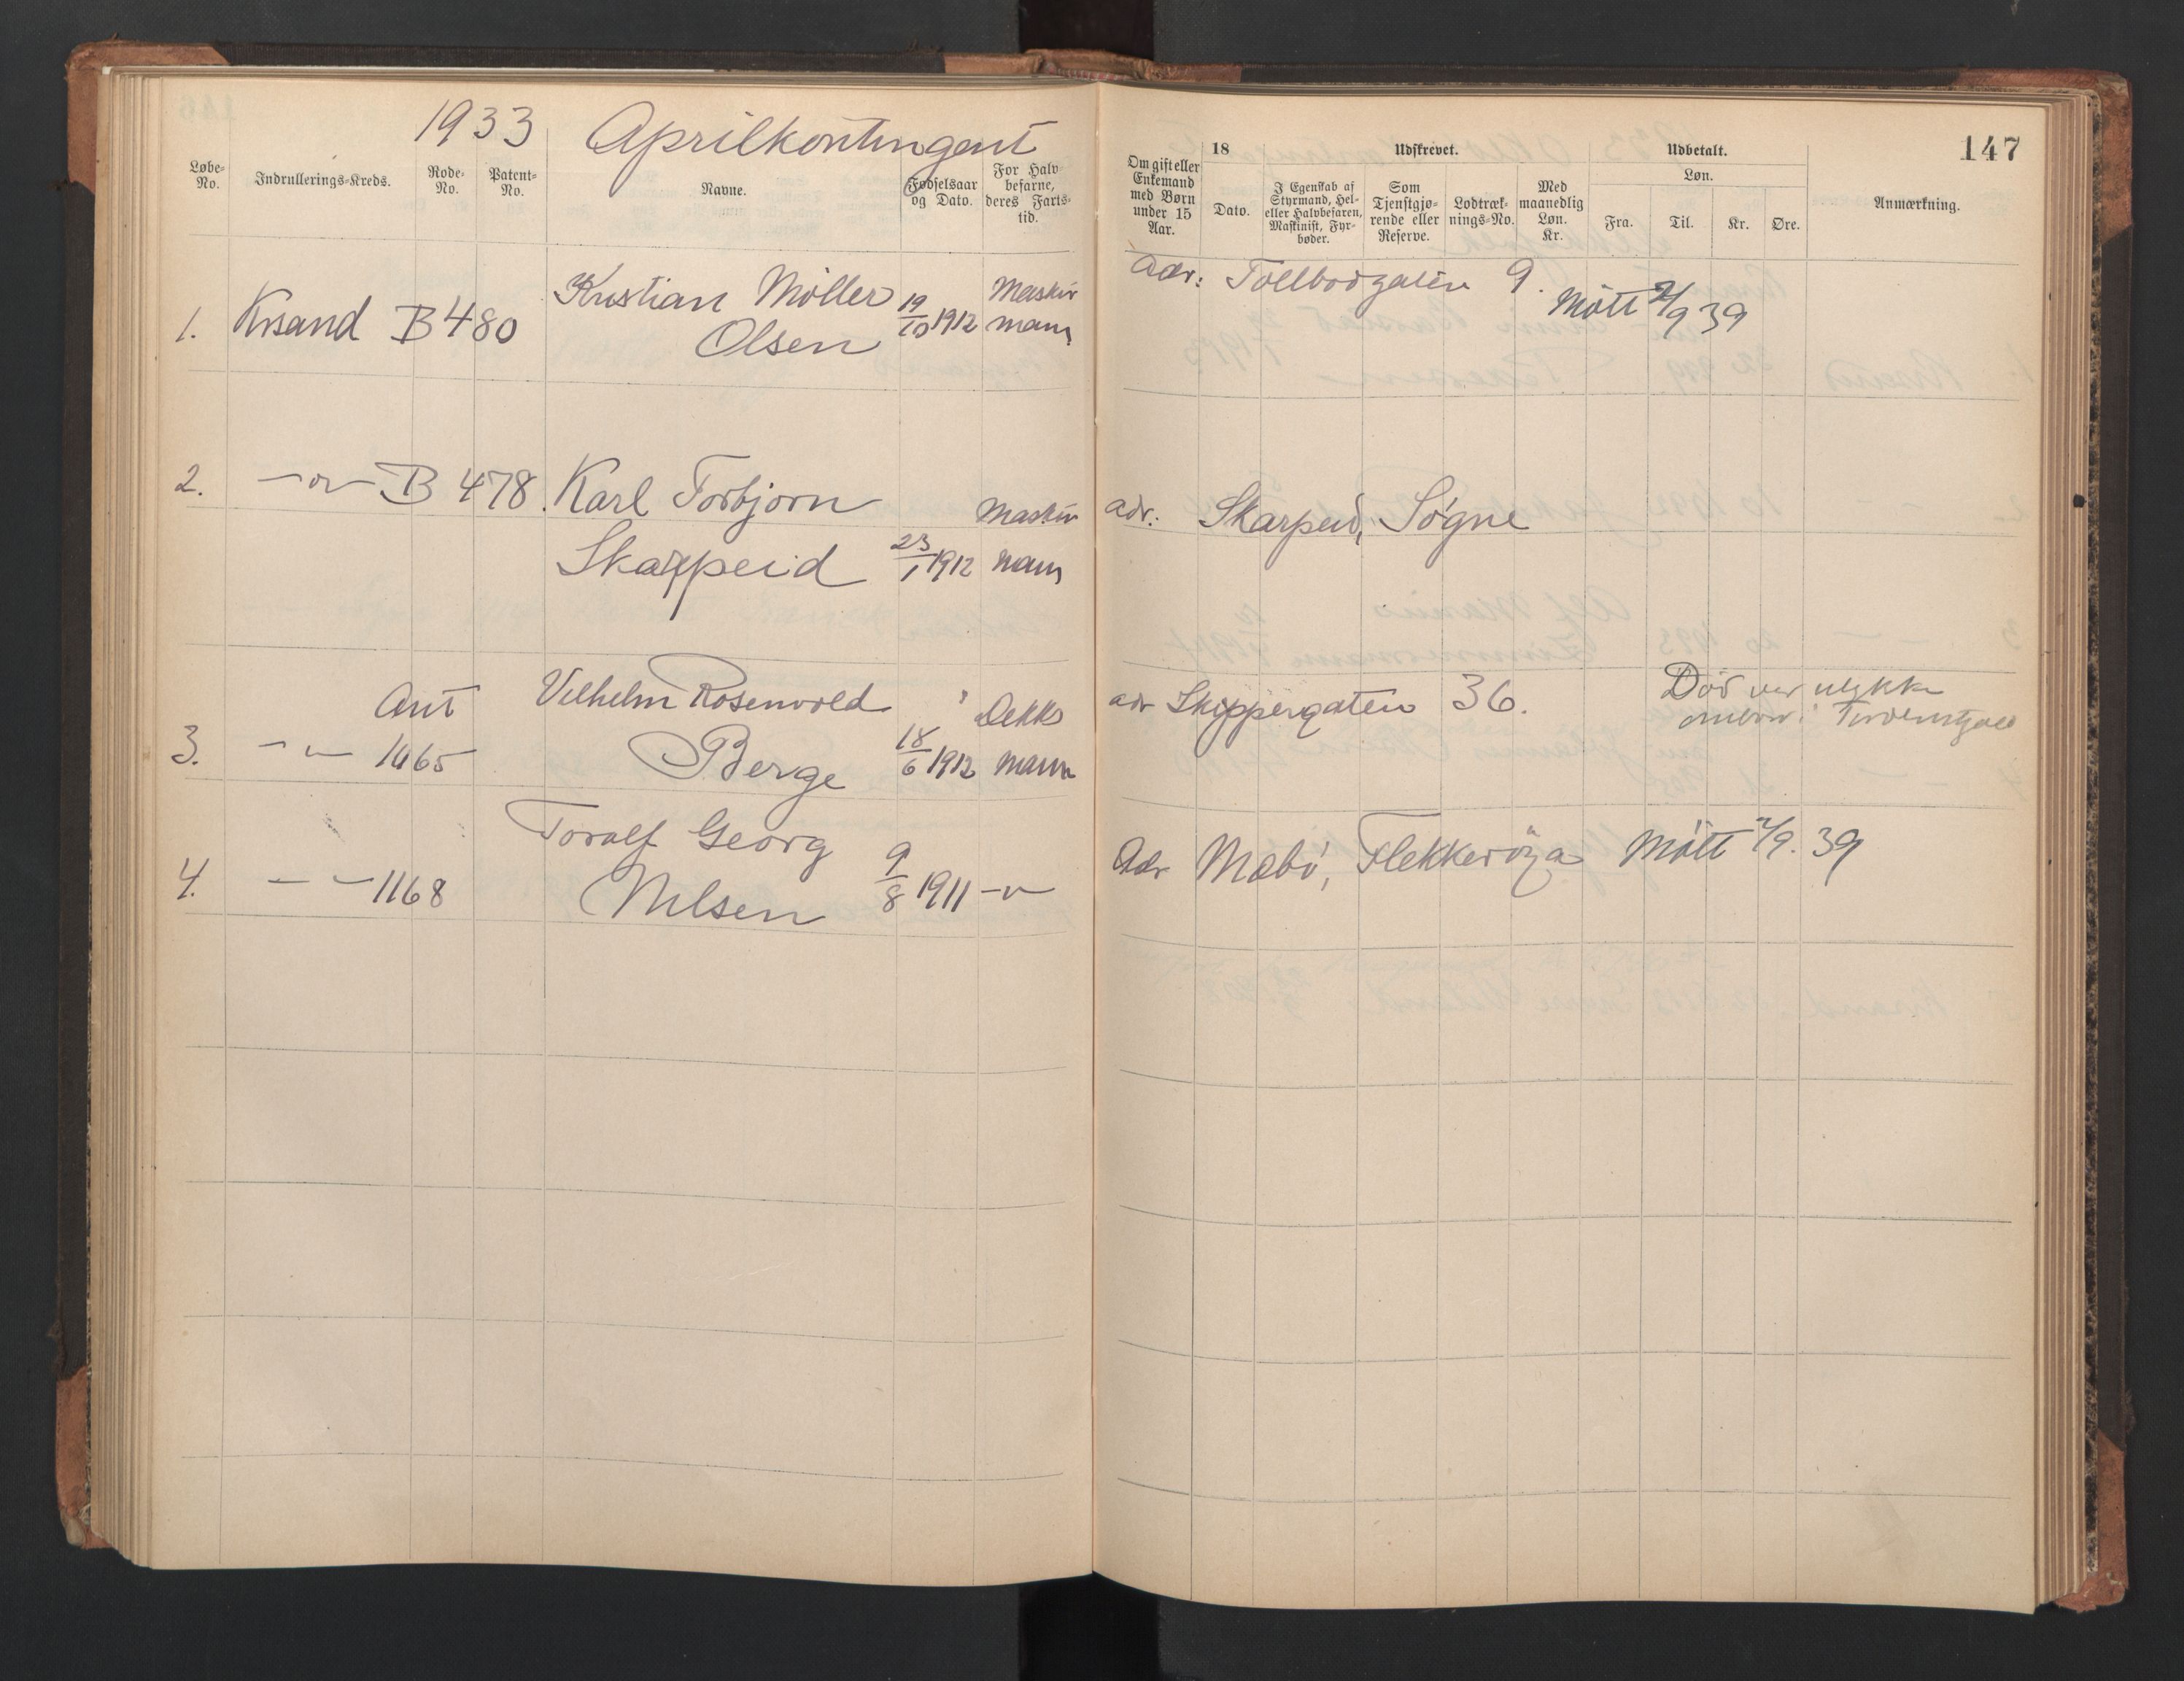 1933 Aprilkontingent
147
Løbe-No. Indrullerings-Kreds. Rode-No. Patent-No. Navne. Fødselsaar og Dato. For Halvbefarne, deres Fartstid.
Om gift eller Enkemand med Børn under 15 Aar. 18 Dato. Udskrevet. I Egenskab af Styrmand, Hel- eller Halvbefaren, Maskinist, Fyrbøder. Som Tjenstgjørende eller Reserve. Lodtræknings-No. Med maanedlig Løn. Kr. Udbetalt. Løn. Fra. Til. Kr. Øre. Anmærkning.
Kristian Möller 19/10 1912 Maskin
1. Krsand B 480 Olsen mann
Adr: Tollbodgaten 9. Mött 2/9 39
2. B 478. Karl Torbjörn Maskin
Skarpeid 23/1 1912 mann
adr. Skarpeid, Søgne
Ant Vilhelm Rosenvold Dekks
3. 1065 Berge 18/6 1912 mann
adr Skippergaten 36. Död ved ulykke
ombord i
Toralf Georg
4. 1168 Nilsen 9/8 1911
Adr Mæbö, Flekkeröya Mött 2/9. 39